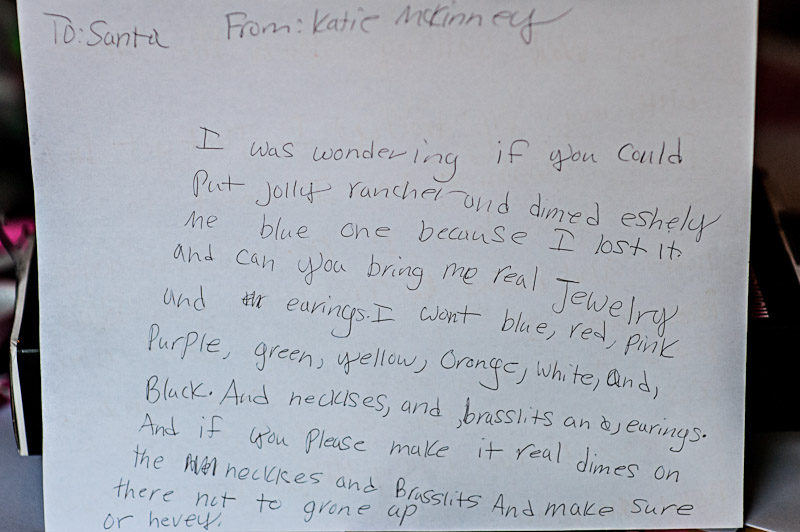 To: Santa From: Katie McKinney
I was wondering if you could
Put jolly rancher and dimed eshely
the blue one because I lost it.
and can you bring me real Jewelry
and earings. I wont blue, red, pink
Purple, green, yellow, Orange, white, and,
Black. And necklses, and, brasslits and, earings.
And if you Please make it real dimes on
the neckles and Brasslits And make sure
there not to grone up
or hevey.